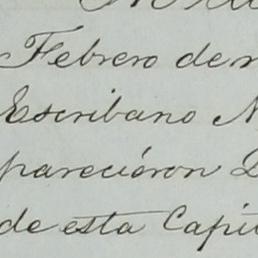 Febrero de
Escribano
pareciéron D
de esta Capi